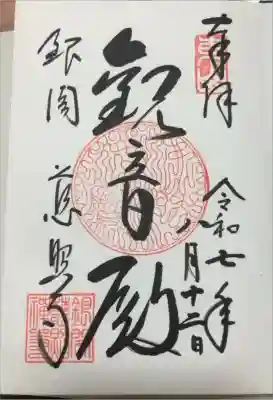 奉拝
令和七年
八月十二日
観音殿
銀閣
慈照寺